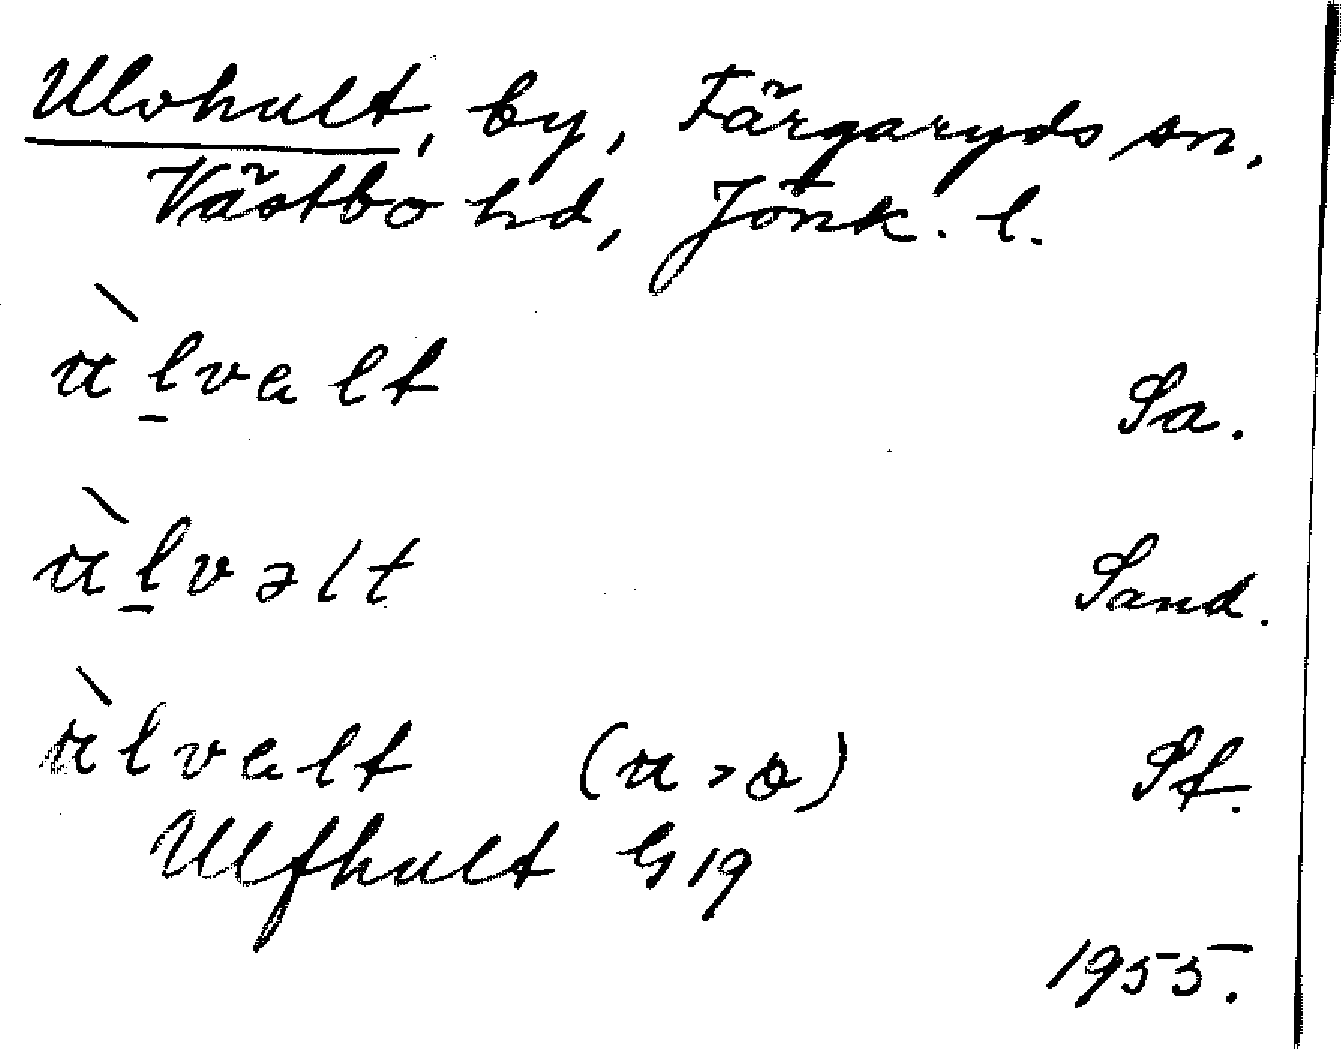 Ulvhult, by, Färgaryds sn,
Västbo hd, Jönk. l.
ùl̠valt Sa.
ùl̠vəlt Sand.
ùlvalt (u > o) Sf.
Ulfhult G 19
1955.